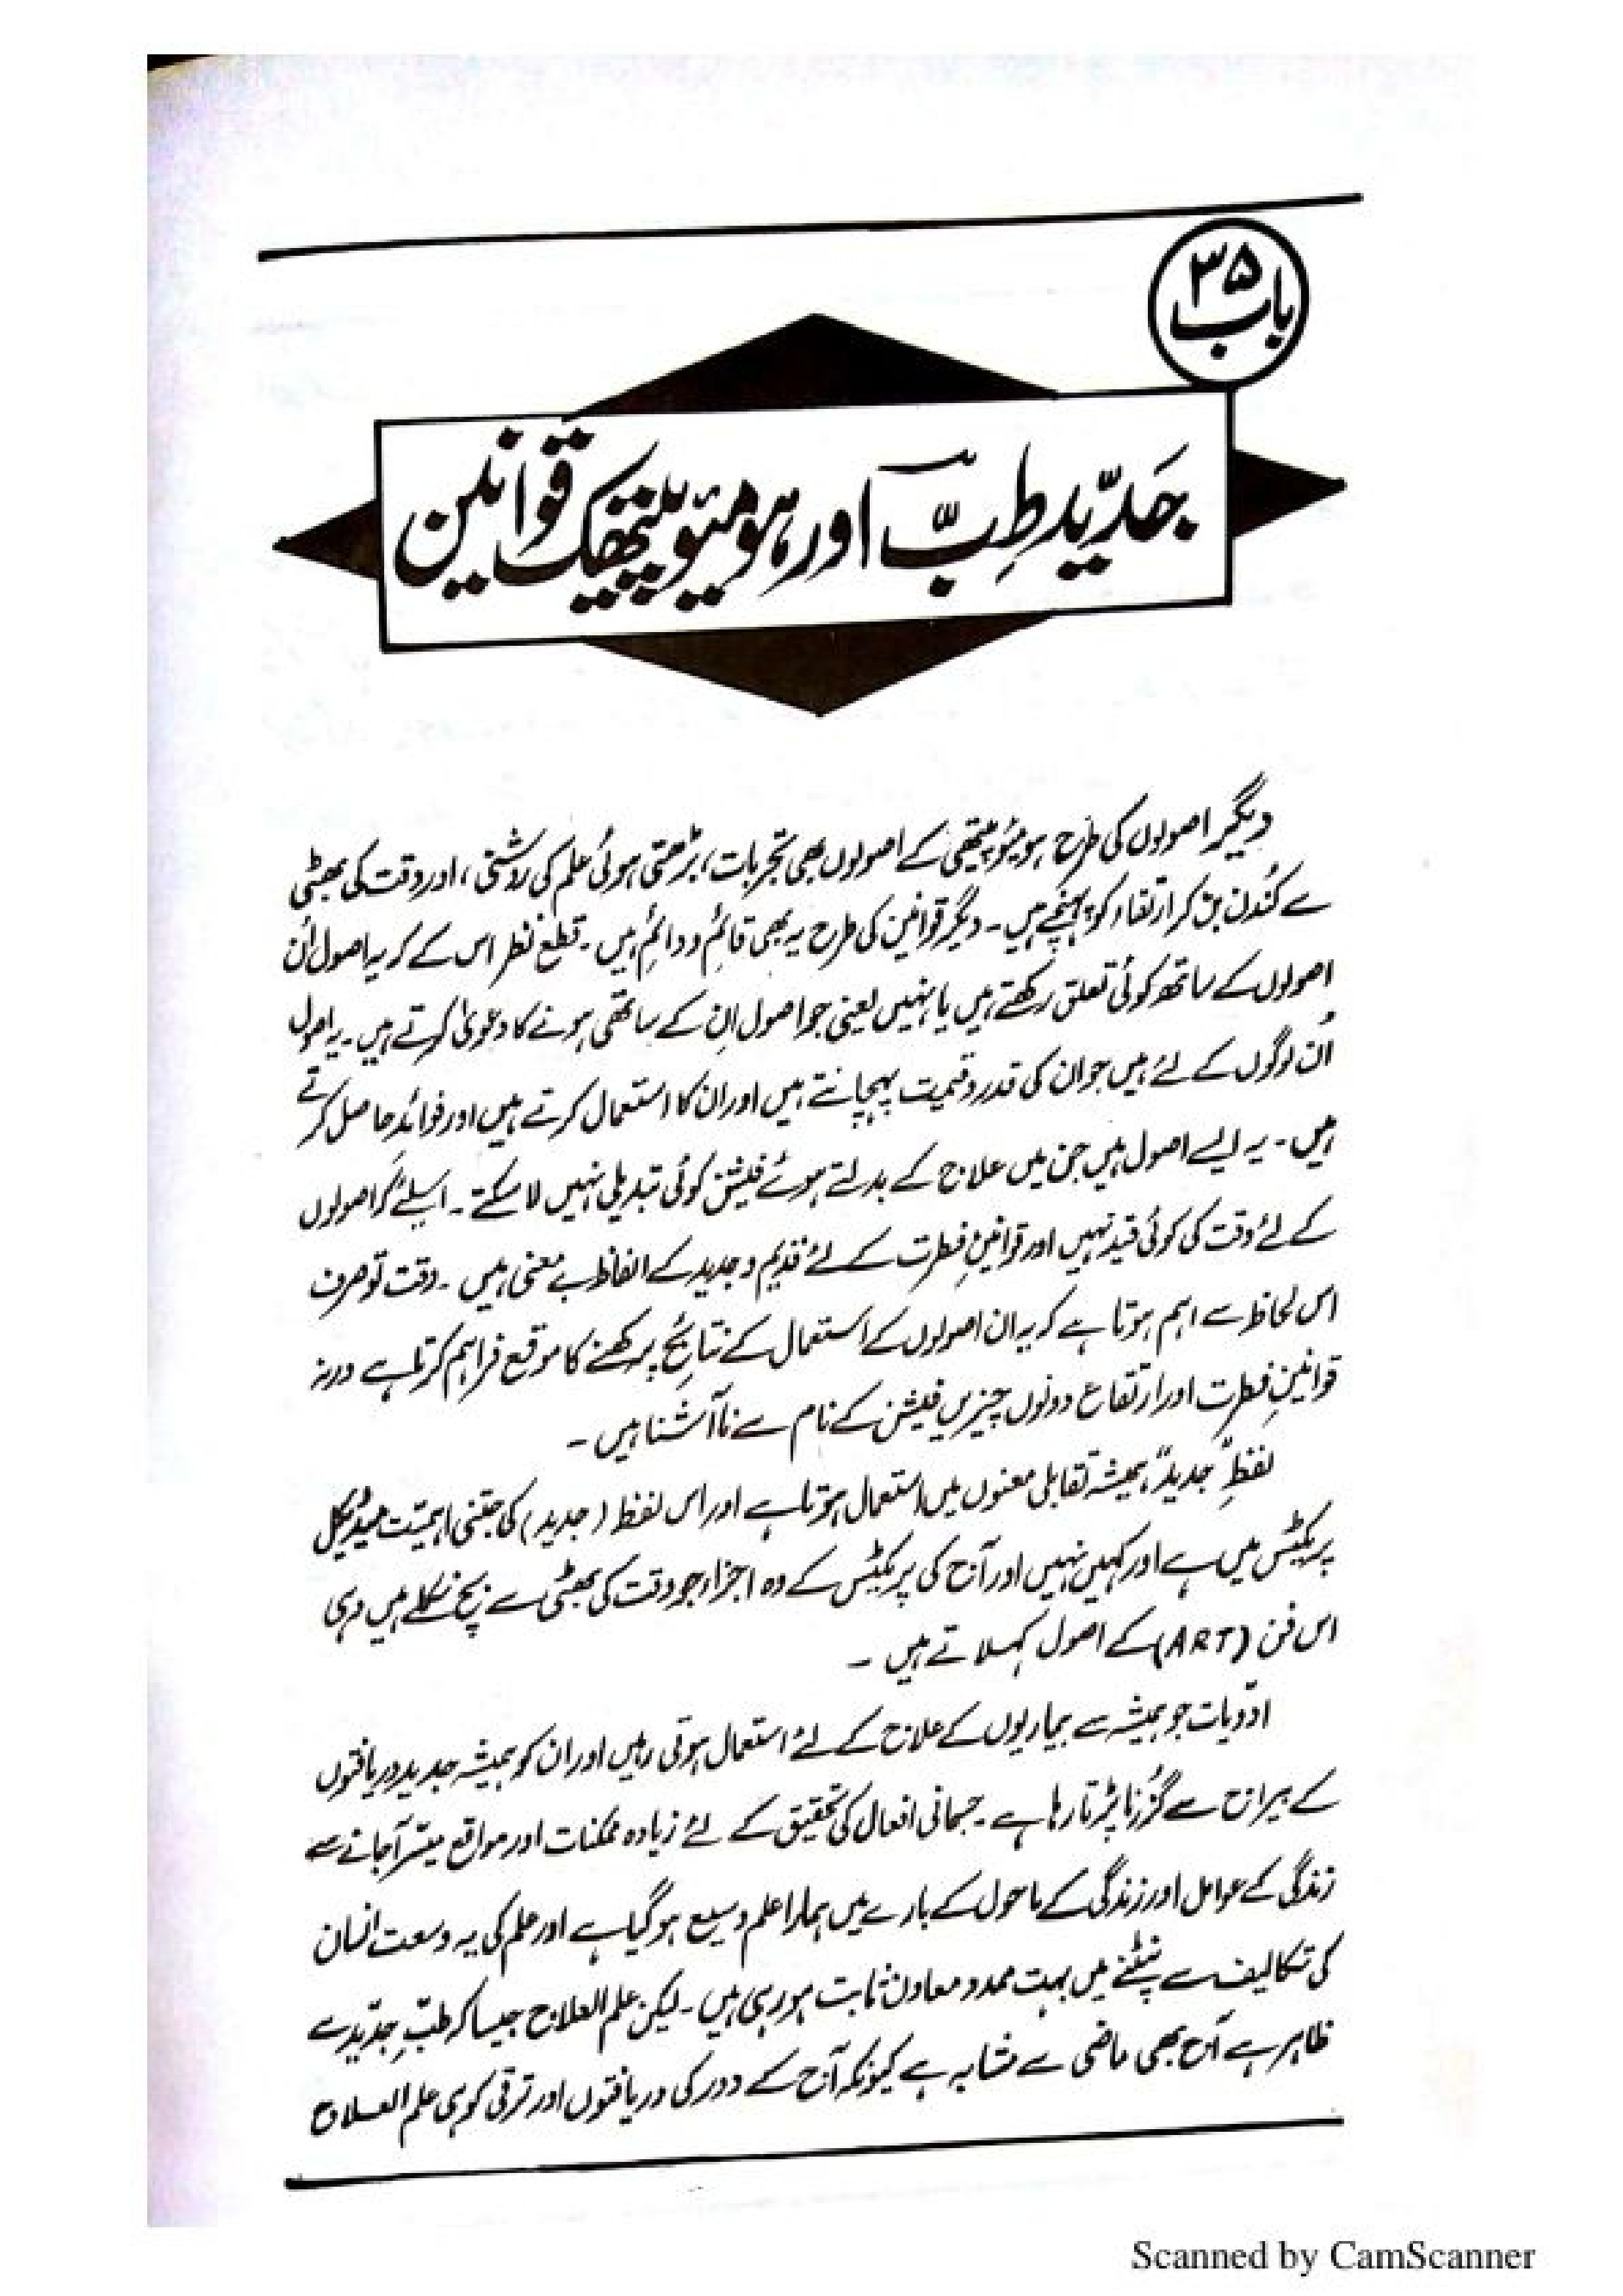 باب ۳۵
جدید طب اور ہومیوپیتھک قوانین
دیگر اصولوں کی طرح ہومیوپیتھی کے اصولوں بھی تجربات، بڑھتی ہوئی علم کی روشنی، اور وقت کی بھٹی
سے کُندن بن کر ارتقاء کو پہنچے ہیں۔ دیگر قوانین کی طرح یہ بھی قائم و دائم ہیں۔ قطع نظر اس کے کہ یہ اصول اُن
اصولوں کے ساتھ کوئی تعلق رکھتے ہیں یا نہیں یعنی جو اصول اِن کے ساتھی ہونے کا دعویٰ کرتے ہیں۔ یہ اصول
اُن لوگوں کے لئے ہیں جو ان کی قدر و قیمت پہچانتے ہیں اور ان کا استعمال کرتے ہیں اور فوائد حاصل کرتے
ہیں۔ یہ ایسے اصول ہیں جن میں علاج کے بدلتے ہوئے فیشن کوئی تبدیلی نہیں لا سکتے۔ اسلئے کہ اصولوں
کے لئے وقت کی کوئی قید نہیں اور قوانینِ فطرت کے لئے قدیم و جدید کے الفاظ بے معنی ہیں۔ وقت تو صرف
اس لحاظ سے اہم ہوتا ہے کہ یہ ان اصولوں کے استعمال کے نتائج پرکھنے کا موقع فراہم کرتا ہے ورنہ
قوانینِ فطرت اور ارتقاع دونوں چیزیں فیشن کے نام سے ناآشنا ہیں۔
لفظِ "جدید" ہمیشہ تقابلی معنوں میں استعمال ہوتا ہے اور اس لفظ (جدید) کی جتنی اہمیّت میڈیکل
پریکٹس میں ہے اور کہیں نہیں اور آج کی پریکٹس کے وہ اجزاء جو وقت کی بھٹی سے بچ نکلے ہیں وہی
اس فن (ART) کے اصول کہلاتے ہیں۔
ادویات جو ہمیشہ سے بیماریوں کے علاج کے لئے استعمال ہوتی رہیں اور ان کو ہمیشہ جدید دریافتوں
کے میزان سے گزرنا پڑتا رہا ہے۔ جسمانی افعال کی تحقیق کے لئے زیادہ ممکنات اور مواقع میسّر آجانے سے
زندگی کے عوامل اور زندگی کے ماحول کے بارے میں ہمارا علم وسیع ہو گیا ہے اور علم کی یہ وسعت انسان
کی تکالیف سے نپٹنے میں بہت ممد و معاون ثابت ہو رہی ہیں۔ لیکن علم العلاج جیسا کہ طبِّ جدید سے
ظاہر ہے آج بھی ماضی سے مشابہ ہے کیونکہ آج کے دور کی دریافتوں اور ترقی کو ہی علم العلاج
Scanned by CamScanner